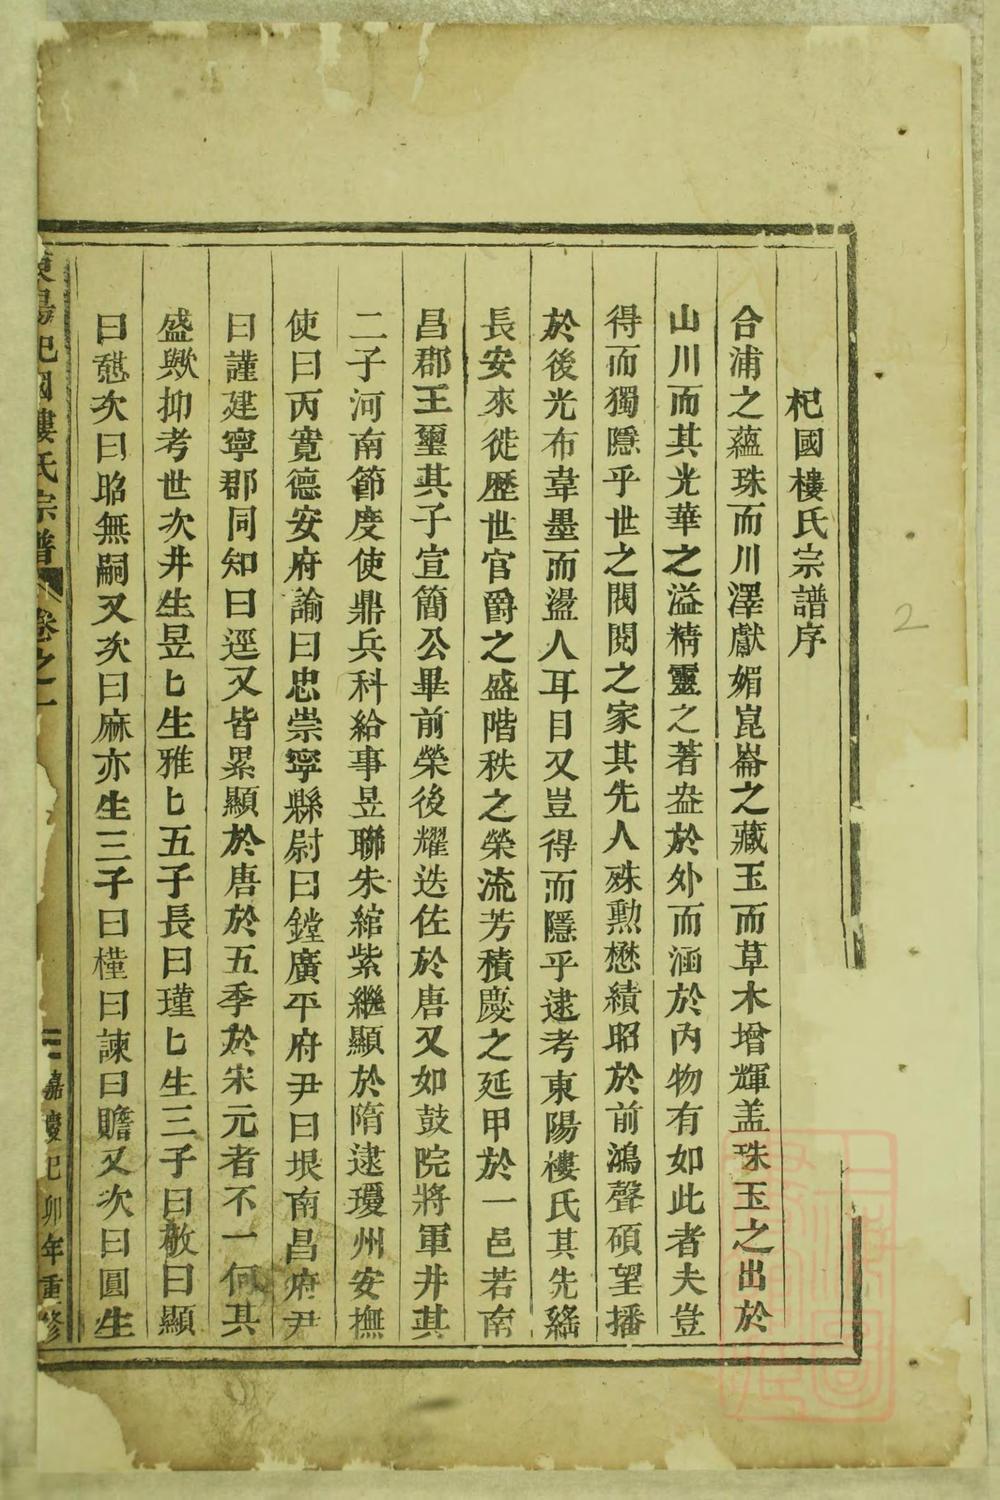 杞國樓氏宗譜序
合浦之蘊珠而川澤獻媚崑崙之藏玉而草木增輝盖珠玉之出於
山川而其光華之溢精靈之著盎於外而涵於內物有如此者夫豈
得而獨隱乎世之閥閱之家其先人殊勲懋績昭於前鴻聲碩望播
於後光布韋墨而盪人耳目又豈得而隱乎逮考東陽樓氏其先繇
長安來徙歷世官爵之盛階秩之榮流芳積慶之延甲於一邑若南
昌郡王璽其子宣簡公畢前榮後耀迭佐於唐又如鼓院將軍井其
二子河南節度使鼎兵科給事昱聯朱綰紫繼顯於隋逮瓊州安撫
使曰丙寛德安府諭曰忠崇寧縣尉曰鏜廣平府尹曰垠南昌府尹
曰謹建寧郡同知曰逕又皆累顯於唐於五季於宋元者不一何其
盛歟抑考世次井生昱匕生雅匕五子長曰瑾匕生三子曰敬曰顯
曰懇次曰昭無嗣又次曰麻亦生三子曰槿曰諫曰贍又次曰圓生
東陽杞國樓氏宗譜 卷之一 嘉慶己卯年重修
2